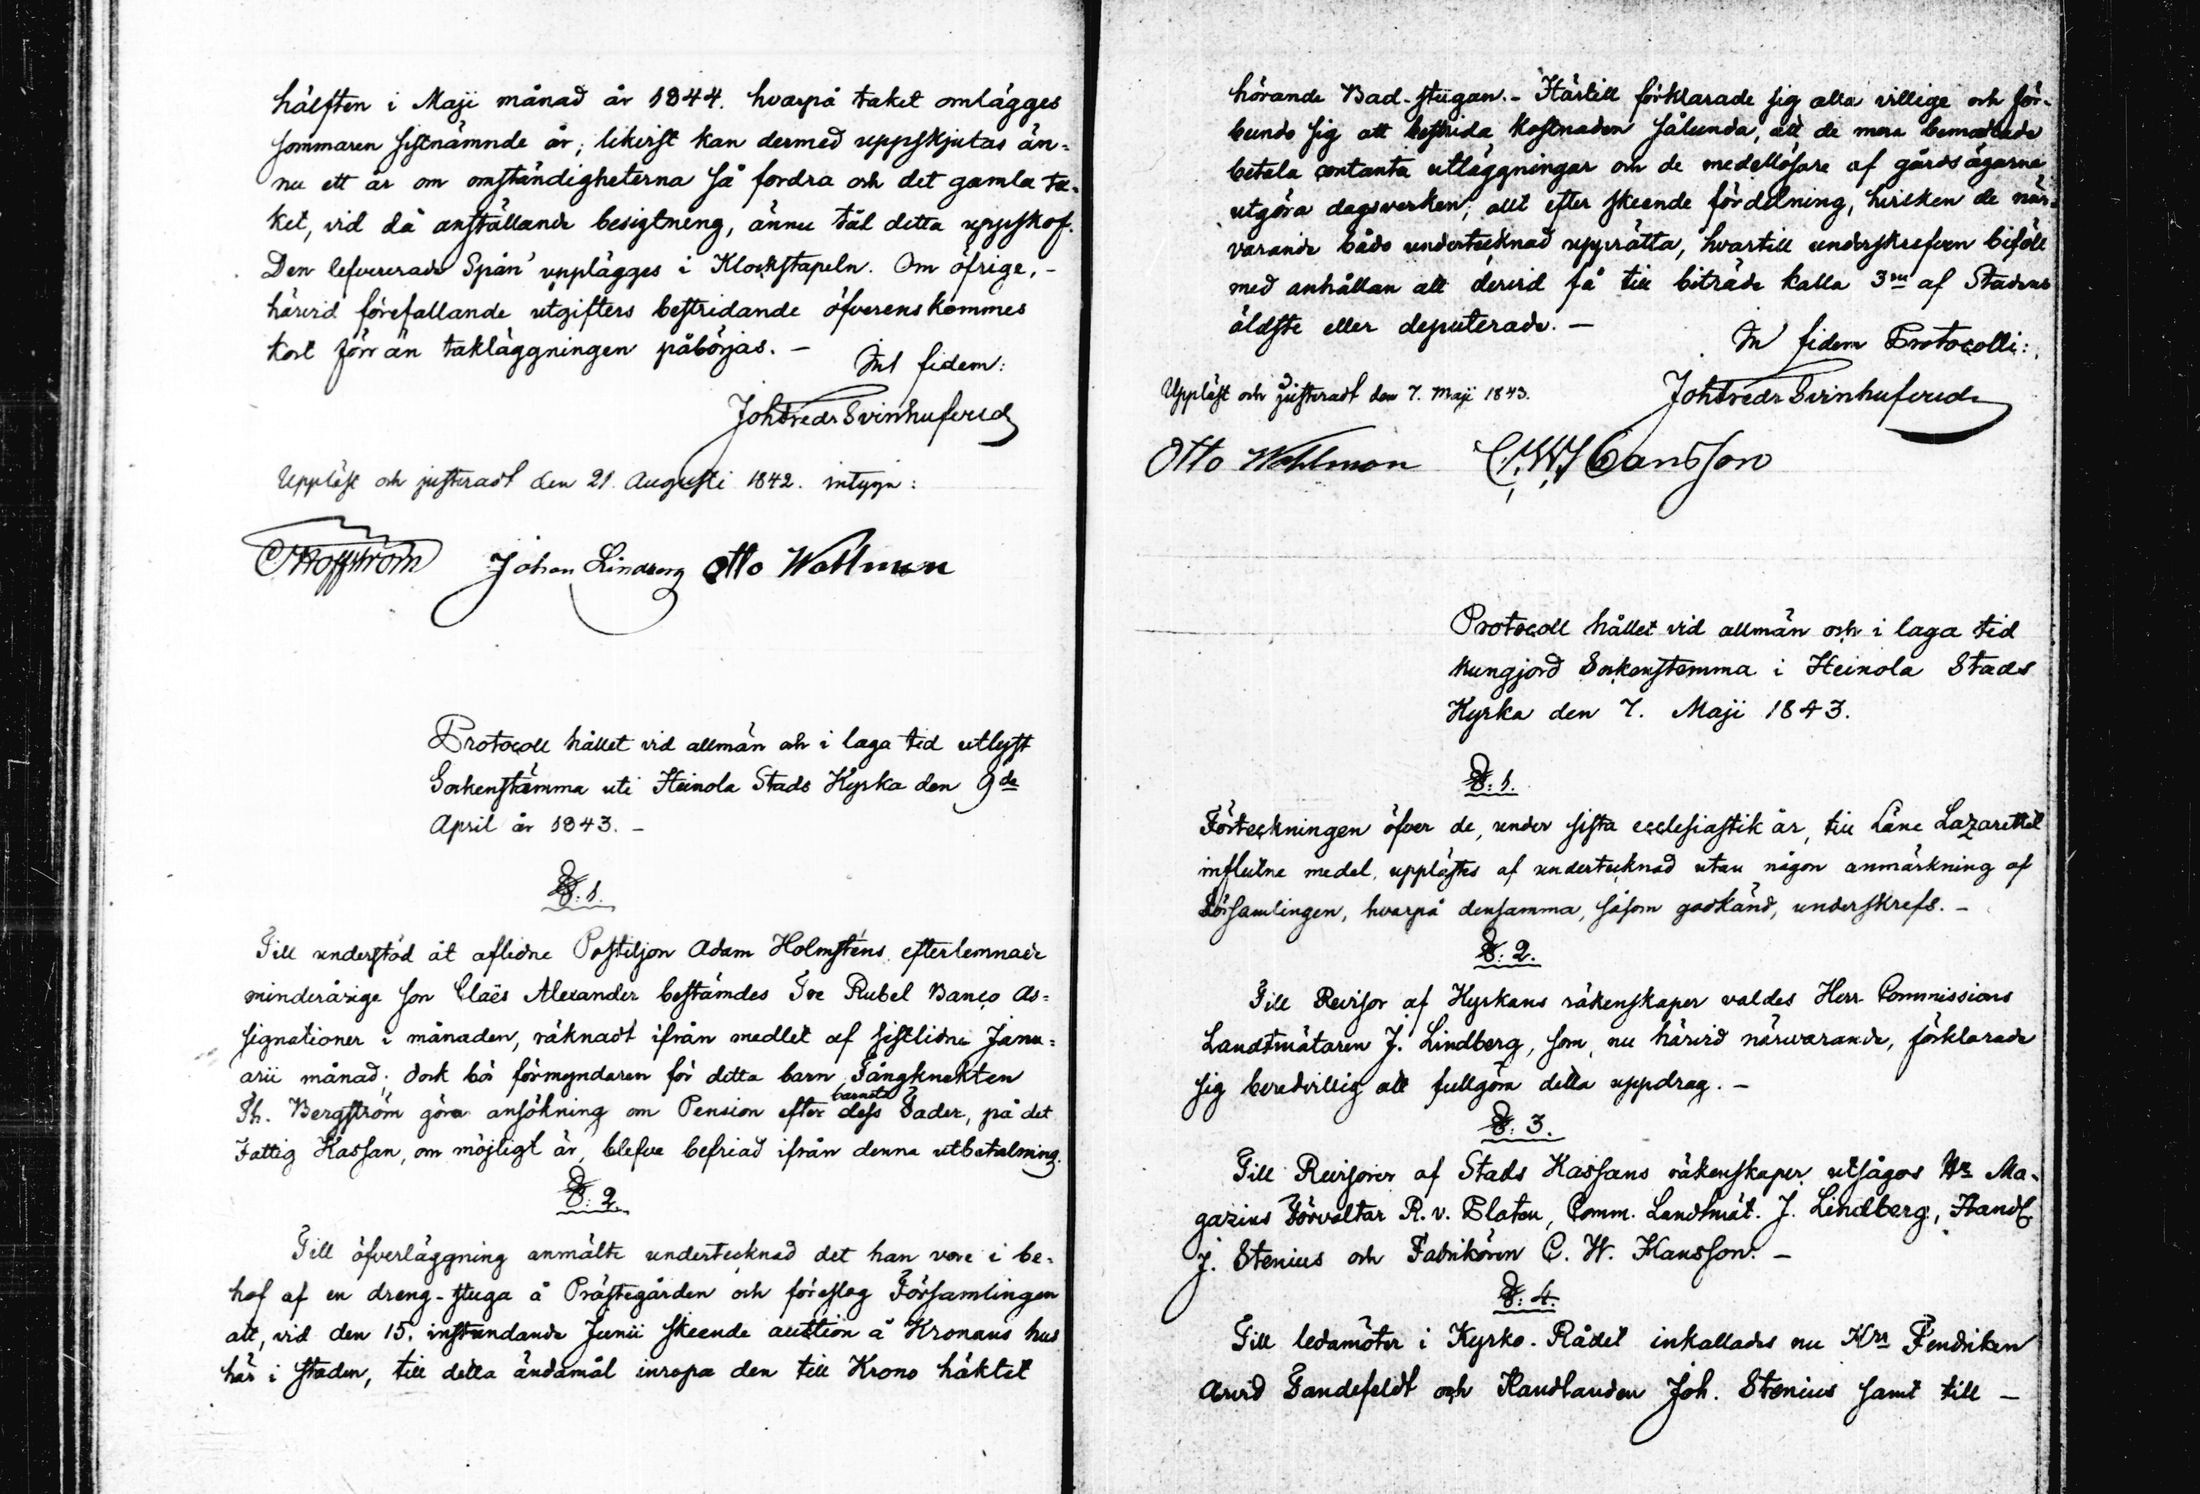 hälften i Maji månad år 1844. hvarpå taket omlägges
sommaren sistnämnde år; likerst kan dermed uppskjutas än-
nu ett år om omständigheterna så fordra och det gamla ta-
ket, vid då anställande besigtning, ännu tål detta uppskof.
Den lefvererade Spån upplägges i Klockstapeln. Om öfrige, -
härvid förefallande utgifters bestridande öfverenskommes
kort förr än takläggningen påbörjas. -
In fidem:
Joh Fredr Svinhufvud
Uppläst och justeradt den 21 Augusti 1842. intyga:
Johan Lindberg Otto Wahlman
Protocoll hållet vid allmän och i laga tid utlyst
Sockenstämma uti Heinola Stads Kyrka den 9de
April år 1843. -
§. 1.
Till understöd åt aflidne Postiljon Adam Holmsténs efterlemnade
minderårige son Claës Alexander bestämdes Tre Rubel Banco As-
signationer i månaden, räknadt ifrån medlet af sistlidne Janu-
arii månad; dock bör förmyndaren för detta barn, Fångknekten
Th. Bergström göra ansökning om Pension efter barnets dess Fader, på det
Fattig Kassan, om möjligt är, blefve befriad ifrån denna utbetalning.
§. 2.
Till öfverläggning anmälte undertecknad det han vore i be-
hof af en dreng-stuga å Prästegården och föreslog Församlingen
att, vid den 15. instundande Junii skeende auction å Kronans hus
här i staden, till detta ändamål inropa den till Krono häktet
hörande Bad-stugan. - Härtill förklarade sig alla villige och för-
bundo sig att bestrida kostnaden sålunda, att de mera bemedlade
betala contanta utläggningar och de medellösare af gårdsägarne
utgöra dagsverken; allt efter skeende fördelning, hvilken de när-
varande både undertecknad upprätta, hvartill underskrefven biföll
med anhållan att dervid få till biträde kalla 3ne af Stadens
äldste eller deputerade. -
In fidem Protocolli:
Joh Fredr Svinhufvud
Uppläst och justeradt den 7. Maji 1843.
Otto Wahlman C. W. Hansson
Protocoll hållet vid allmän och i laga tid
kungjord Sockenstemma i Heinola Stads
Kyrka den 7. Maji 1843.
§. 1.
Förteckningen öfver de, under sista ecclesiastik år, till Läns Lazarettet
influtne medel, upplästes af undertecknad utan någon anmärkning af
Församlingen, hvarpå densamma, såsom godkänd, underskrefs. -
§. 2.
Till Revisor af Kyrkans räkenskaper valdes Herr Commissions
Landtmätaren J. Lindberg, som, nu härvid närvarande, förklarade
sig beredvillig att fullgöra detta uppdrag. -
§. 3.
Till Revisorer af Stads Kassans räkenskaper utsågos Hr Ma-
gazins Förvaltar R. v. Platen, Comm. Landtmät. J. Lindberg, Handl.
J. Stenius och Fabrikören C. W. Hansson. -
§. 4.
Till ledamöter i Kyrko-Rådet inkallades nu Hrr Fendriken
Arvid Tandefeldt och Handlanden Joh. Stenius samt till -